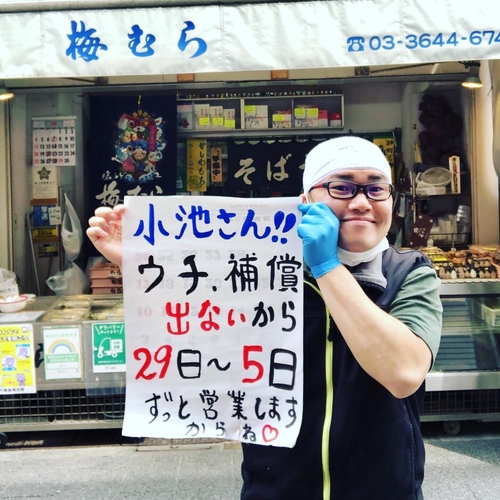 梅むら
☎03-3644-674
そば
小池さん!!
ウチ、補償
出ないから
29日〜5日
ずっと営業します
からね♡